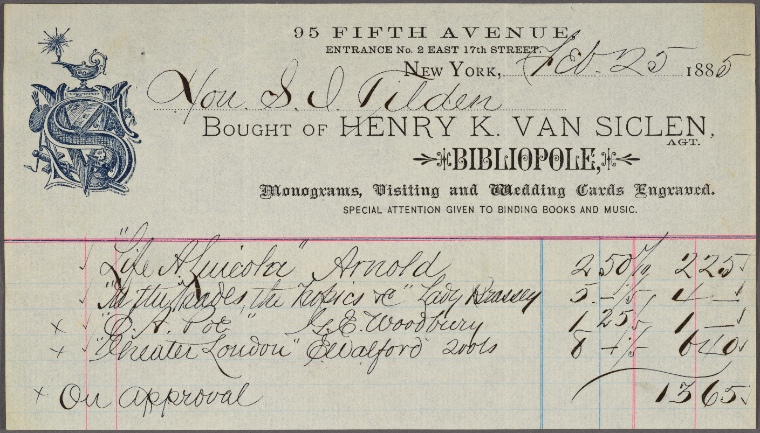 95 FIFTH AVENUE,
ENTRANCE No. 2 EAST 17th STREET.
NEW YORK, Feb. 25 1885
Hon. S. J. Tilden
BOUGHT OF HENRY K. VAN SICLEN,
AGT.
BIBLIOPOLE,
Monograms, Visiting and Wedding Cards Engraved.
SPECIAL ATTENTION GIVEN TO BINDING BOOKS AND MUSIC.
"Life A. Lincoln" Arnold 2 50 2 25
"In the Trades, the Tropics &c" Lady Brassey 5 – 4 –
x "E. A. Poe" G. E. Woodbury 1 25 1 –
x "Greater London" E Walford 2 vols 8 – 6 40
x On approval 13 65